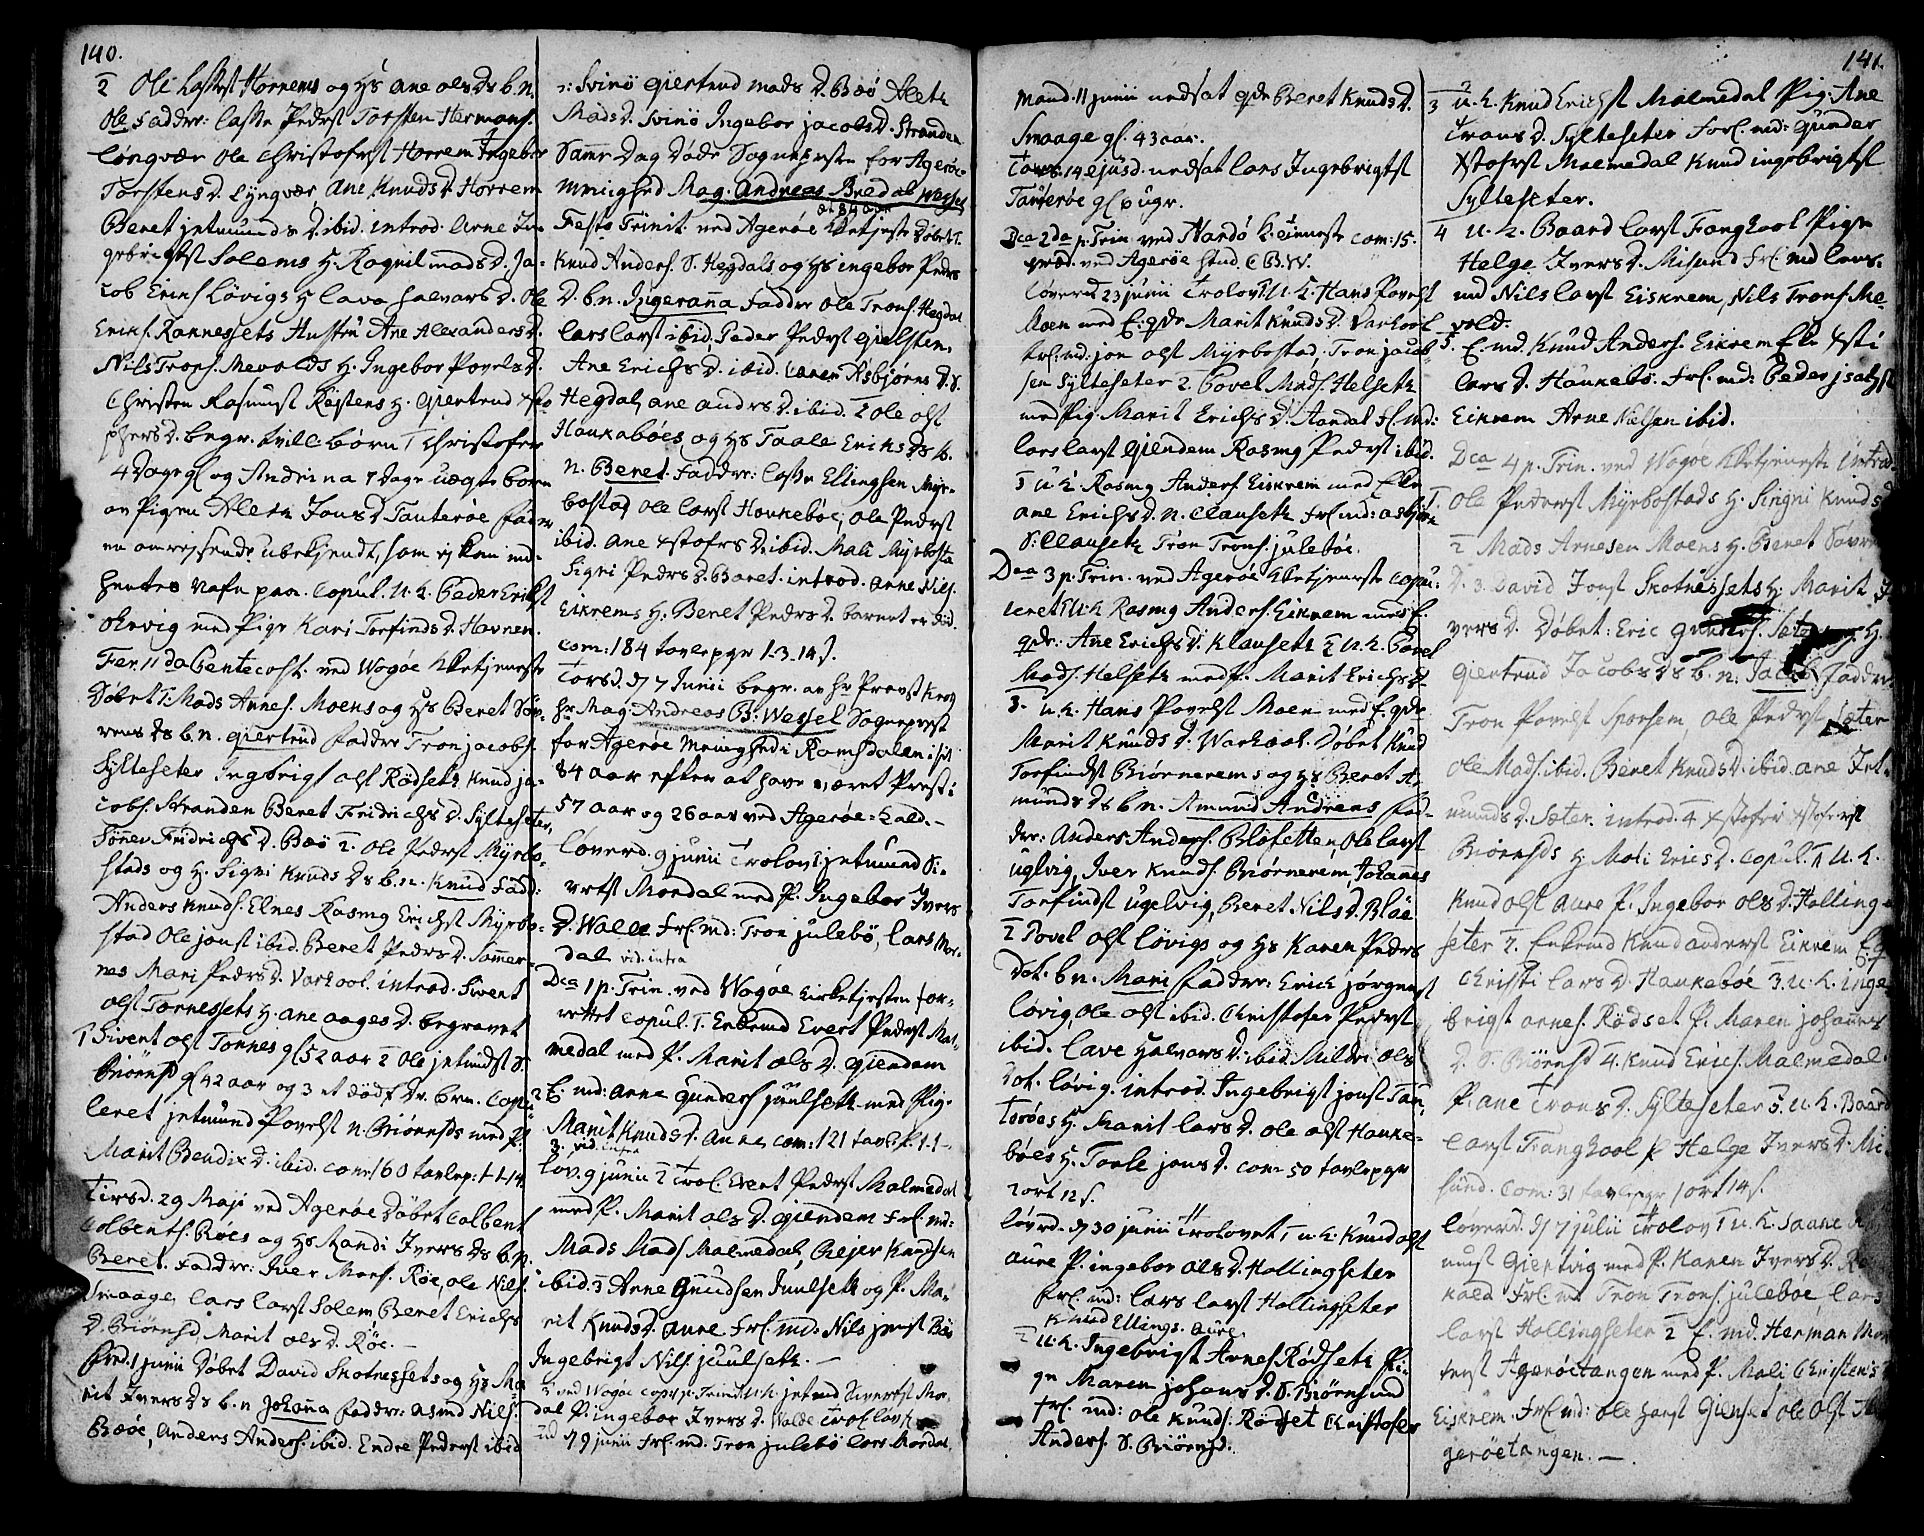 140.
2 Ole Lassest Horrems og Hs Ane ols Ds b.n.
Ole fadder: Lasse Pederst Torsten Hermans.
Løngvær Ole Christoferst Horrem Ingebor
Torstens D. Lyngvær, Ane Knuds D. Horrem
Beret jetmunds D. ibid. introd. Arne In-
gebrigtst Solems H. Ragnil mads D. Ja-
cob Erichs Lövigs H lava halvars D. Ole
Eriks. Rannessets Hustru Ane Alexanders D.
Nils Trons. Mevolds H. Ingebor Povels D.
Christen Rasmust Restens H. Giertrud
phers D. begr. tville börn 1 Christofer
4 Dage gl og Andrina 7 Dage uægte born
av Pigen Aleth Jons D. Tauterøe
en omreisende ubekjendt, som ej kan ind-
hentes Nafn paa. copul. U.K. Peder Erichst
Ohrvig med Pige Kari Torfinds D. Havnen.
Fer. 11 da Pentecost. ved Wogøe Kketjeneste
Döbet 1. Mads Arnes. Moens og Hs Beret Søv-
rens Ds b.n. Giertrud fadder Tron jacobs.
Sylteseter Ingebrigt olst Rødseth Knud ja-
cobs. Stranden Beret Fridrichs D. Sylteseter,
Sönev Fridrichs D. Boö 2. Ole Pederst Myrbo-
stads og H. Signi Knuds Ds b.n. Knud Fadd:
Anders Knuds. Elnes Rasmg Erichst Myrbo-
stad Ole jonst ibid. Beret Peders D. Sømmer-
nes Mari Peders D. Varhool. introd. Sivert
olst Tornessets H. ane aages D. begravet
1 Sivert olst Tornes gl 52 aar 2 Ole jetmundst S.
Biörnsd gl 42 aar og 3 et dödf. Dr. brn. copu-
leret jetmund Povelst N. Biörnsds med P.
Marit Bendix D. ibid. com: 160 tavlep: 1-1-14.
Tirsd. 29 Maji ved Agerøe Döbet Colbent
Colbents. Röes og Hs Randi Ivers Ds b.n.
Beret. Fadder: Iver Mons. Röe, ole Nils.
Smaage, Lars Larst Solem Beret Erichs
D. Biörnsd, Marit ols D. Röe. —
Fred. 1 junii Döbet David Skotnessets og Hs Ma
rit Ivers Ds b.n Johanna fadder: Asmd Nils.
Boöe, Anders Anders. ibid. Endre Pederst ibid
Svinö Giertrud mads D. Boö Aleth
Mads D. Svinö Ingebor jacobs D. Stranden
Samme Dag Döde Sognepresten for Agerøe
Menighed Mag. Andreas Bredal Wessel
æt 84 aar
Festo Trinit. ved Agerøe Kketjeneste Döbt 1.
Knud Anders. S. Hegdals og Hs ingebor Peders
D. b.n. Ingeranna Fadder Ole Trons. Hegdal
Lars Larst ibid, Peder Pederst Gielsten,
Ane Erichs D. ibid. Karen Asbjörns D. S.
Hegdal, ane anders D. ibid. 2 ole olst
Haukabøes og Hs Taale Eriks Ds b.
n. Beret. Fadder: Lasse Ellingsen Myr-
bostad Ole Larst Haukebøe, Ole Pederst
ibid. Ane Xstofrs D. ibid. Mali Myrbosta
Signi Peders D. Baret. introd. Arne Nils.
Eikrems H. Beret Peders D. barnet er död.
com: 184 tavlepge 1-3-14 s.
Torsd. d. 7 Junii begr. av Hr Provst Krog
Hr Mag. Andreas B. Wessel Sogneprest
for Agerøe Menighed i Romsdalen i sit
84 aar efter at have været Prest i
57 aar og 26 aar ved Agerøe-kald. —
Løverd. 9 junii Trolovt jetmund Si-
vertst Mordal med P. Ingebor Ivers
D. Walle Frl. md: Tron julebö, Lars Mor-
dal vid. infra
Dca 1 p. Trin. ved Wogøe Kirketjesten for-
rettet copul. 1. Enkemd Evert Pederst Mal-
medal med P. Marit ols D. Giendem
2 E. md: Arne Gunders Juulseth med Pig.
Marit Knuds D. Aure com: 121 tavlp. 1-1-
3. vid. infra
Løv. 9 junii 2 Trol. Evert Pederst Malmedal
med P. Marit ols D. Giendem Frl. md:
Mads Mads. Malmedal, Rejer Knudsen
ibid. 3 Arne Gundsen Juulseth og P. Ma-
rit Knuds D. Aure Frl. md. Nils jenst Böe
Ingebrigt Nils. juulseth. —
3 ved Wogøe copul p. Trinit U.K. jetmd Sivertst Mor-
dal P. ingebor Ivers D. Walde Trolov
d 9 junii Frl. md. Tron julebö Lars Mordal.
141.
Mand. 11 junii nedsat Qde Beret Knuds D.
Smaage gl. 43 aar.
Tors. 14 ejusd. nedsat Lars Ingebrigtst
Tauterøe gl 6 ugr.
Dca 2da p. Trin. ved Nordö K. tieneste com: 15.
præd. ved Agerøe Stud. C B.W.
Løverd 23 junii Trolovt 1 U.K. Hans Povelst
Moen med E: qde Marit Knuds D. Varhool
Frl. md. jon olst Myrbostad. Tron jacob-
sen Sylteseter 2. Povel Mads. Helseth
med Pig Marit Erichs D. Aandal Frl md:
Lars Larst Giendem Rasmg Pederst ibid.
3 U.K. Rasmg Anders Eiskrem med Eke
ane Erichs D. N. Clauseth Frl md: Asbiörn
S. Clauseth Tron Trons. julebøe.
Dca 3 p. Trin. ved Agerøe Kketjeneste copu-
leret 1 U.K Rasmg Anders. Eikrem med E.
qde: Ane Erichs D. Klauseth 2 U.K. Povel
Mads. Helseth med P. Marit Erichs D
3. U.K. Hans Povelst Moen med E. qde
Marit Knuds D. Warhool. Döbet Knud
Torfindst Biörnerems og Hs Beret A-
munds Ds b.n. Amund Andreas Fad-
der: Anders Anders. Bløkletten, Ole Larst
Uglvig, Iver Knuds. Biörnerem, Johannes
Torfindst Ugelvig, Beret Nils D. Bløe
2 Povel olst Lövigs og Hs Karen Peders
Dot. b.n. Mari Fadder: Erich jörgenst
Lövig, Ole olst ibid. Christofer Pederst
ibid. Lave Halvars D. ibid. Mildri ols
Dot. Lövig. introd. Ingebrigt jonst Tau-
terøes H Marit Lars D. Ole olst Hauke-
bøes H. Taale jons D. com 50 tavlepge
2 ort 12 s.
Løvrd. d 30 junii Trolovet 1 U.K. Knud olst
Aure P. ingebor ols D. Hollingseter
Frl. md: Lars Larst Hollingseter
Knud Ellings. Aure.
2 U.K. Ingebrigt Arnes Rødseth Pi-
ge Maren johans D. S. Biörnsund
Frl. md: Ole Knuds. Rödset Christofer
Anders. S. Biörnsd.
3 U.K. Knud Erichst Malmedal Pig. Ane
Trons D. Sylteseter Frl. md: Gunder
Xstoferst Malmedal Knud ingebrigtst
Sylteseter.
4 U.K. Baard Larst Tanghool Pige
Helge Ivers D. Misund Frl md Laur.
md Nils Larst Eiskrem, Nils Trons. Me
vold.
5. E. md. Knud Anders. Eikrem Eke Xsti
Lars D. Haukebö: Frl. md: Peder jsachst
Eikrem Arne Nielsen ibid.
Dca 4 p. Trin. ved Wogøe Kketjeneste introd.
Ole Pederst Myrbostads H. Singni Knuds D
2 Mads Arnesen Moens H. Beret Søvrens
D. 3. David Jonst Skotnessets H. Marit I
vers D. Döbet: Eric Gunders. Seter og H.
Giertrud Jacobs Ds b.n: Jacob Fadder.
Tron Povelst Sporsem, Ole Pederst Seter
Ole Mads. ibid. Beret Knuds D. ibid. Ane Jet-
munds D. Seter. introd. 4 Xstofer Xstoferst
Biörnsds H Mali Erics D. copul. 1 U.K.
Knud olst Aure P. Ingebor ols D. Holling-
seter 2. Enkemd Knud anderst Eikrem
Christi Lars D. Haukebøe 3. U.K. Inge-
brigt arnes. Rödset P. Maren johannes
D. S. Biörnsd 4. Knud Erics. Malmedal
P. ane Trons D. Sylteseter 5. U.K. Baard
Larst Tanghool P Helge Ivers D. Mi-
sund. com: 31 tavlepge 1 ort 14 s.
Løverd. d. 7 julii Trolov 1 U.K. Saane
must Gientvig med P. Karen Ivers D.
Kald Frl. md Tron Trons. julebøe, Lars
Larst Hollingseter 2 E. md. Herman Mor
tenst Agerøetangen med P. Mali Christens D
Eiskrem. Frl. md: Ole Hanst Gienset Ole Olst
gerøetangen. —